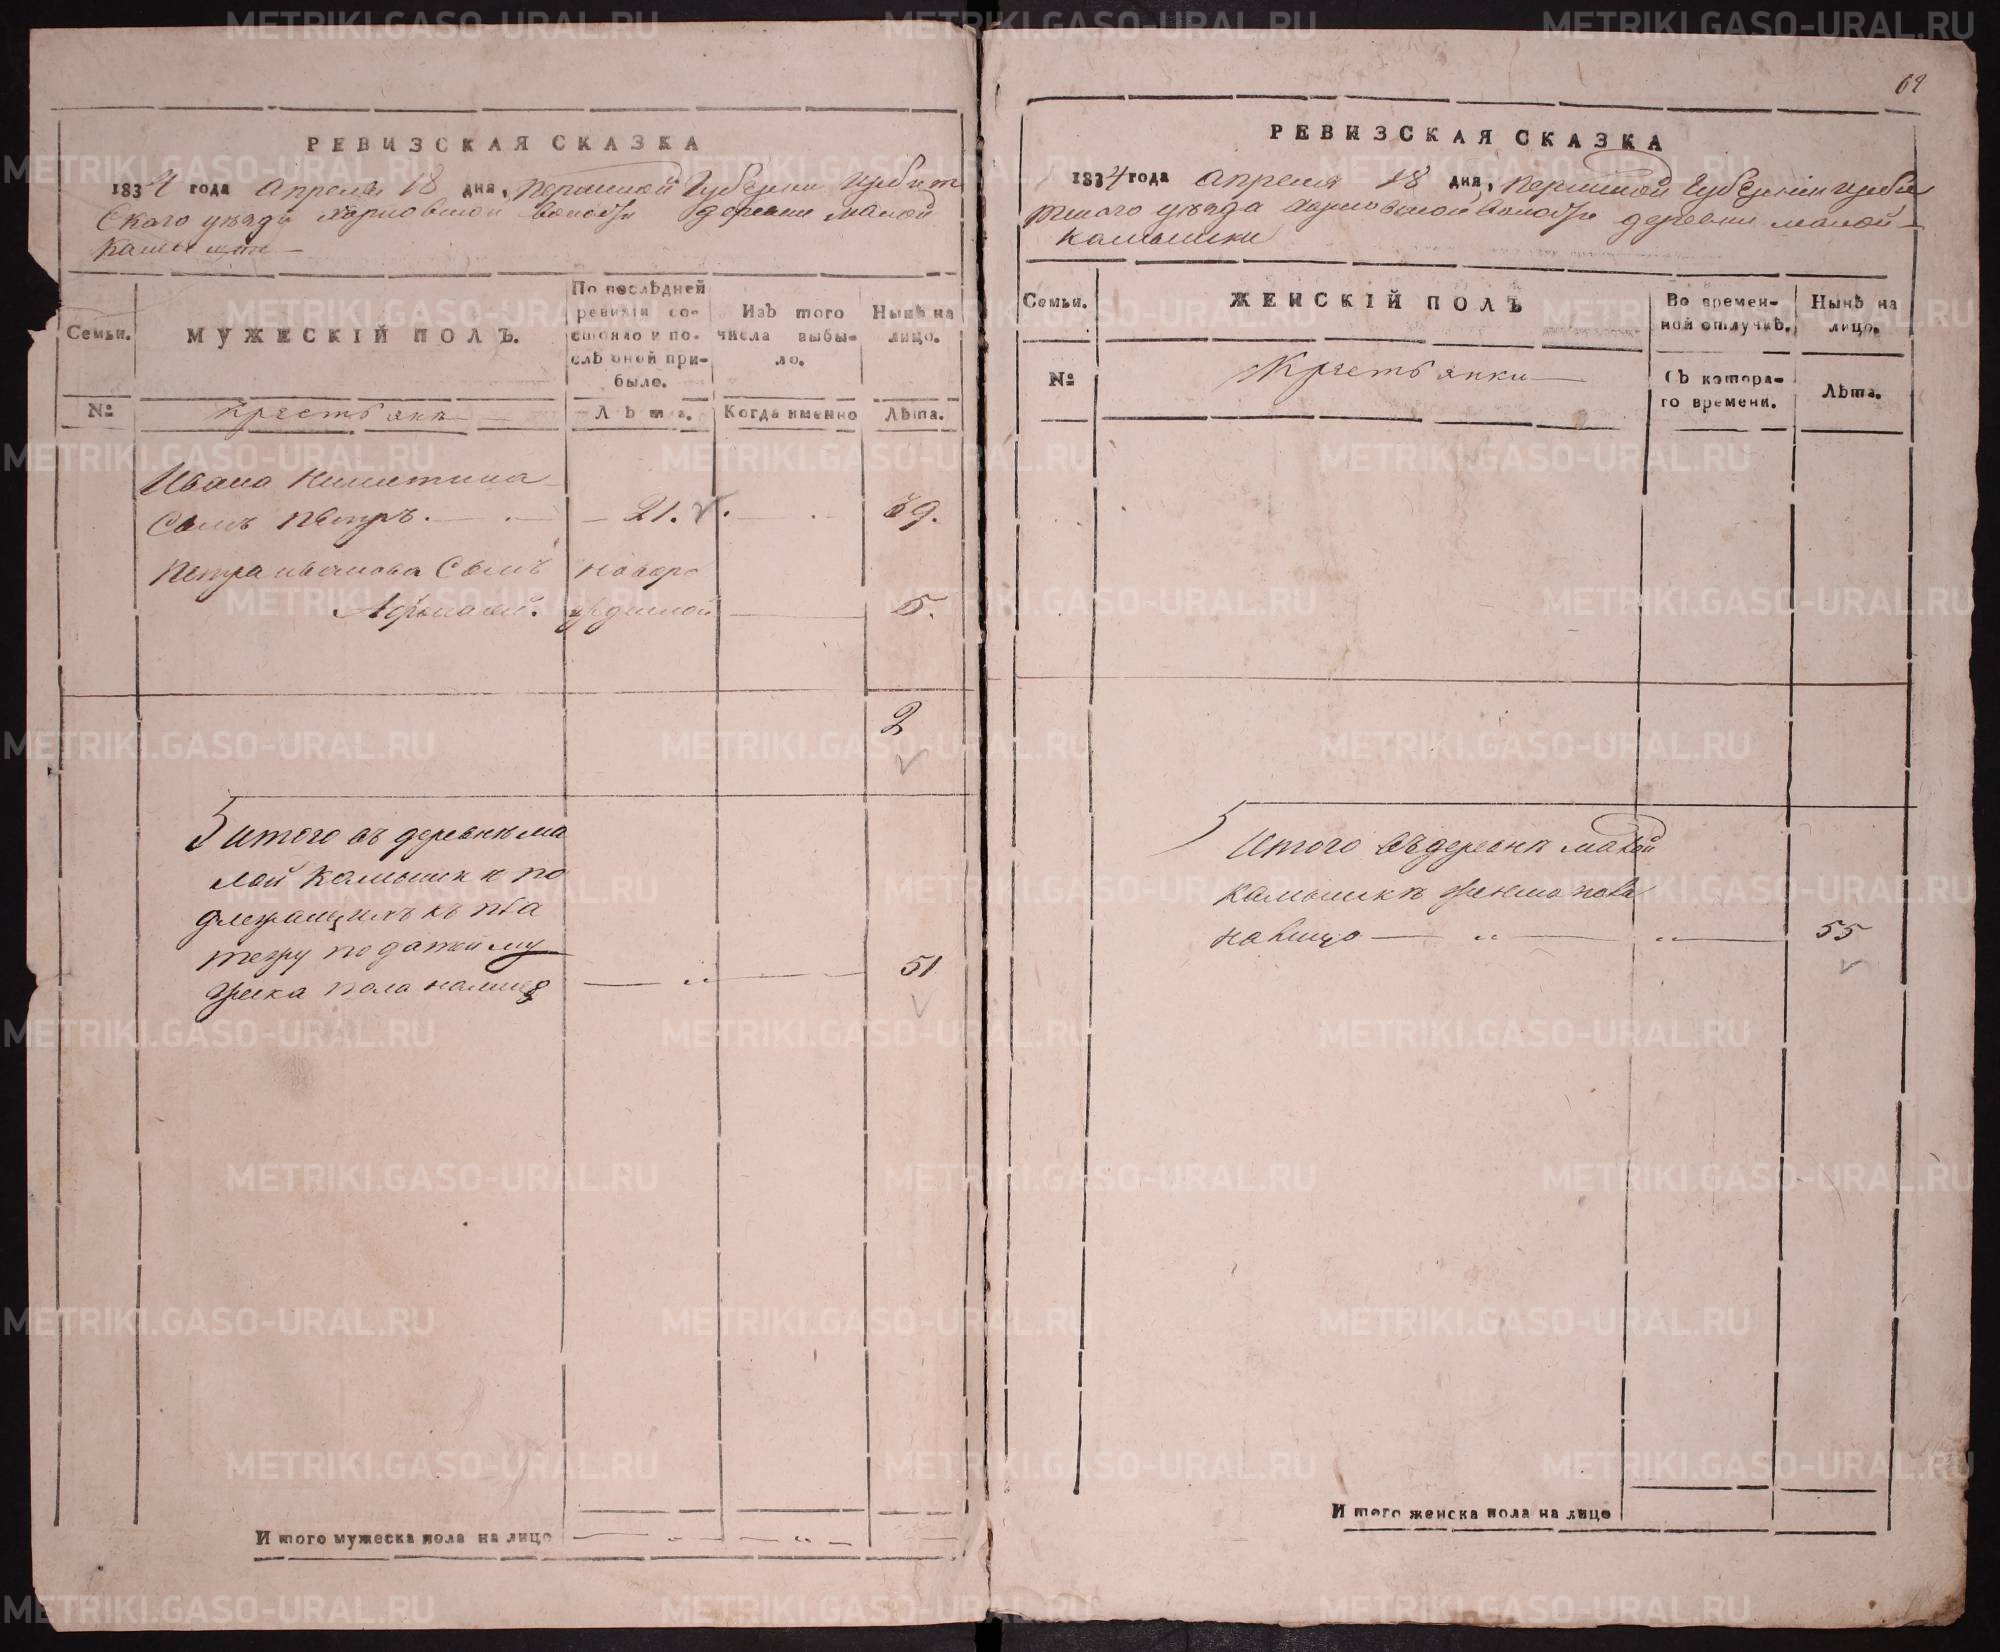 РЕВИЗСКАЯ СКАЗКА
1834 года апреля 18 дня, Пермской Губернии Ирбит
скаго уезда Харловской волости деревни малой
Камышки
Семьи.
МУЖЕСКІЙ ПОЛЪ.
По послѣдней
ревизіи со-
стояло и по-
слѣ оной при-
было.
Изъ того
числа выбы-
ло.
Нынѣ на
лицо.
№
Крестьяне
Лѣта.
Когда именно
Лѣта.
Ивана Никитина
Сынъ Петръ. 21. 39.
Петра иванова Сынъ новоро
Афонасей. жденной 5.
2
Итого въ деревне ма
лой Камышке по
длежащихъ къ пла
тежу податей му
жеска пола налицо 51
Итого мужеска пола на лицо
62
РЕВИЗСКАЯ СКАЗКА
1834 года апреля 18 дня, Пермской Губерніи Ирби
тскаго уезда Харловской волости деревни малой
Камышки
Семьи.
ЖЕНСКІЙ ПОЛЪ
Во времен-
ной отлучкѣ.
Нынѣ на
лицо.
№
Крестьянки
Съ котора-
го времени.
Лѣта.
Итого въ деревне малой
Камышке женска пола
налицо 55
Итого женска пола на лицо